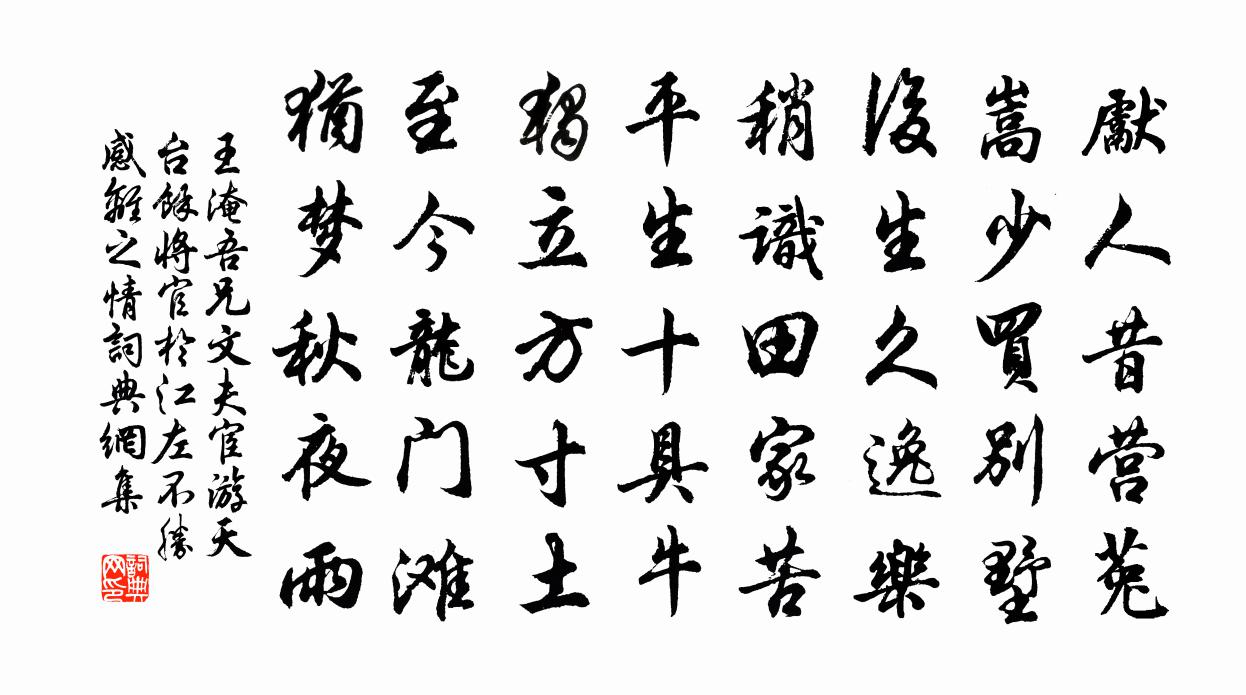 獻人昔营菟
嵩少買別墅
後生久逸樂
稍識田家苦
平生十具牛
獨立方寸土
至今龍门滩
猶梦秋夜雨
王淹吾兄文夫宦游天
台餘将官於江左不勝
感離之情詞典網集
詞典网印